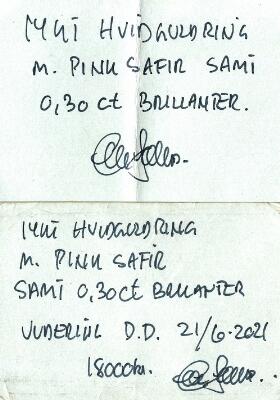 14KT HVIDGULDRING
M. PINK SAFIR SAMT
0,30 ct BRILLANTER.
14KT HVIDGULDRING
M. PINK SAFIR
SAMT 0,30ct BRILLANTER
VURDERING D.D. 21/6-2021
18000kr.